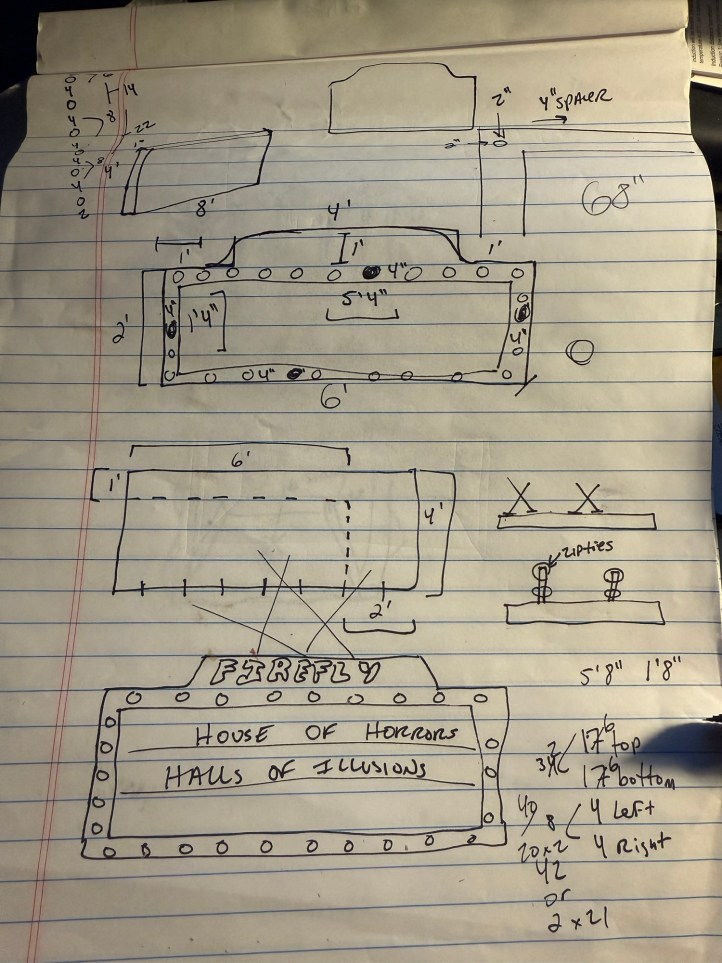 14
8
22
4'
8'
2"
4" SPACER
2"
68"
4'
1'
1'
1'
4"
5'4"
2'
4"
1'4"
4"
4"
6'
6'
1'
4'
2'
ZIPTIES
FIREFLY
HOUSE OF HORRORS
HALLS OF ILLUSIONS
5'8" 1'8"
17 top
17 bottom
4 Left
4 Right
8
40
20x2
42
or
2 x 21